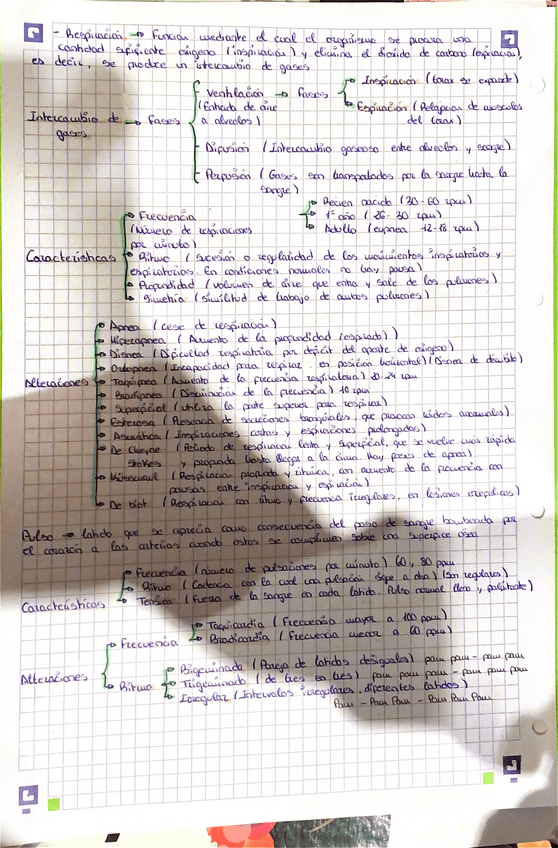 - Respiración → Función mediante el cual el organismo se procura una
cantidad suficiente oxígeno (inspiración) y elimina el dióxido de carbono (espiración),
es decir, se produce un intercambio de gases
Intercambio de gases → Fases
Ventilación → Fases
(Entrada de aire
a alveolos)
Inspiración (torax se expande)
Espiración (Relajación de musculos
del torax)
Difusión (Intercambio gaseoso entre alveolos y sangre)
Perfusión (Gases son transportados por la sangre hasta la
sangre)
Características
Frecuencia
(Número de respiraciones
por minuto)
Recien nacido (30-60 rpm)
1º año (26-30 rpm)
Adulto (eupnea 12-18 rpm)
Ritmo (sucesión o regularidad de los movimientos inspiratorios y
espiratorios. En condiciones normales no hay pausa)
Profundidad (volumen de aire que entra y sale de los pulmones)
Simetría (similitud de trabajo de ambos pulmones)
Alteraciones
Apnea (cese de respiración)
Hiperpnea (Aumento de la profundidad (respirado))
Disnea (Dificultad respiratoria por déficit del aporte de oxígeno)
Ortopnea (Incapacidad para respirar en posición horizontal) (Disnea de decubito)
Taquipnea (Aumento de la frecuencia respiratoria) 20-24 rpm
Bradipnea (Disminución de la frecuencia) 10 rpm
Superficial (Utiliza la parte superior para respirar)
Estertosa (Presencia de secreciones bronquiales, que provocan ruidos anormales)
Asmática (Inspiraciones cortas y espiraciones prolongadas)
De Cheyne (Periodo de respiración lenta y superficial, que se vuelve más rápida
Stokes y profunda hasta llegar a la cima. Hay fases de apnea)
Küssmaul (Respiración profunda y rítmica, con aumento de la frecuencia con
pausas entre inspiración y espiración)
De biot (Respiración con ritmo y frecuencia irregulares, en lesiones encefálicas)
Pulso → latido que se aprecia como consecuencia del paso de sangre bombeada por
el corazón a las arterias cuando estas se comprimen sobre una superficie ósea
Características
Frecuencia (número de pulsaciones por minuto) 60 y 80 ppm
Ritmo (Cadencia con la cual una pulsación sigue a otra) (Son regulares)
Tensión (Fuerza de la sangre en cada latido. Pulso normal lleno y palpitante)
Alteraciones
Frecuencia
Taquicardia (Frecuencia mayor a 100 ppm)
Bradicardia (Frecuencia menor a 60 ppm)
Ritmo
Bigeminado (Pareja de latidos desiguales) pam pam - pam pam
Trigeminado (de tres en tres) pam pam pam - pam pam pam
Irregular (Intervalos irregulares, diferentes latidos)
Pam - Pam Pam - Pam Pam Pam